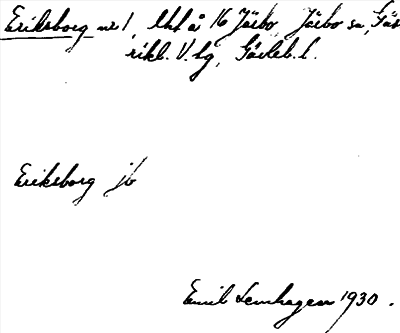 Eriksborg nr 1, lht å 16 Järbo, Järbo sn, Gäst
rikl. V. tg, Gävleb. l.
Eriksborg jb
Emil Lenhagen 1930.